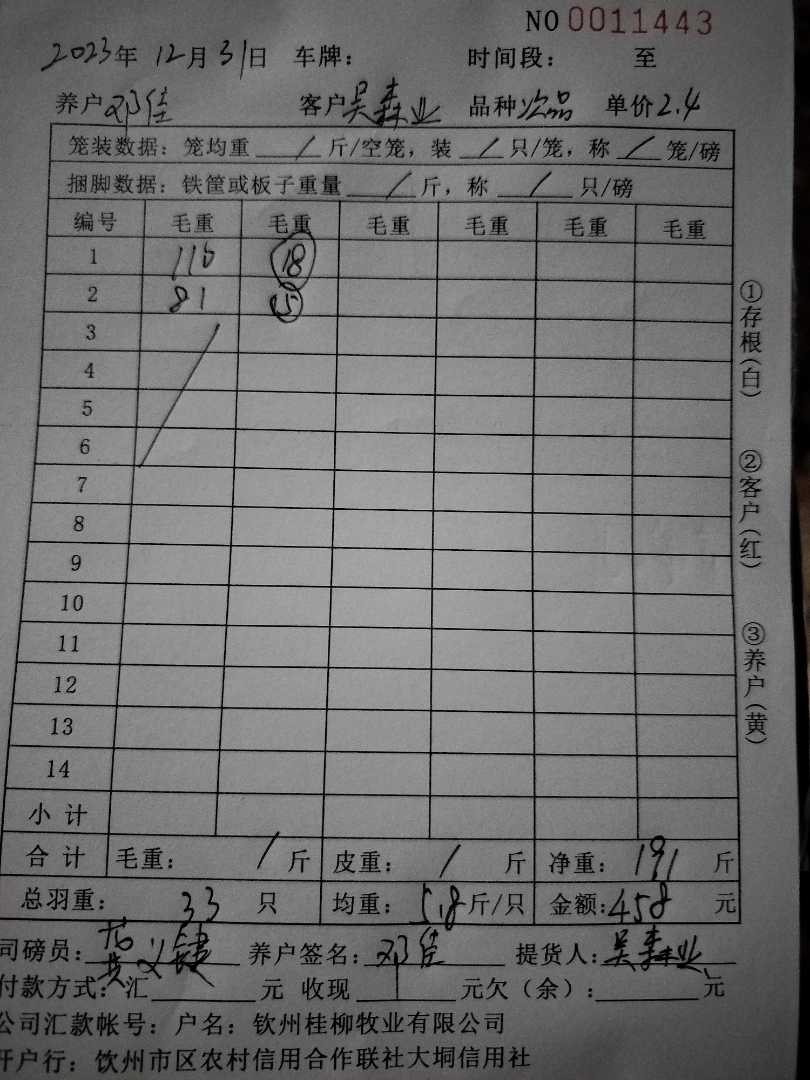 NO 0011443
2023年 12月31日 车牌: 时间段: 至
养户邓佳 客户吴森业 品种次品 单价2.4
笼装数据: 笼均重 / 斤/空笼, 装 / 只/笼, 称 / 笼/磅
捆脚数据: 铁筐或板子重量 / 斤, 称 / 只/磅
编号 毛重 毛重 毛重 毛重 毛重 毛重
1 110 18
2 81 15
3
4
5
6
7
8
9
10
11
12
13
14
小 计
合 计 毛重: / 斤 皮重: / 斤 净重: 191 斤
总羽重: 33 只 均重: 5.8斤/只 金额:458 元
司磅员: 养户签名: 邓佳 提货人:吴森业
付款方式: 汇 元 收现 元欠(余): 元
公司汇款帐号: 户名: 钦州桂柳牧业有限公司
开户行: 钦州市区农村信用合作联社大垌信用社
①存根(白)
②客户(红)
③养户(黄)